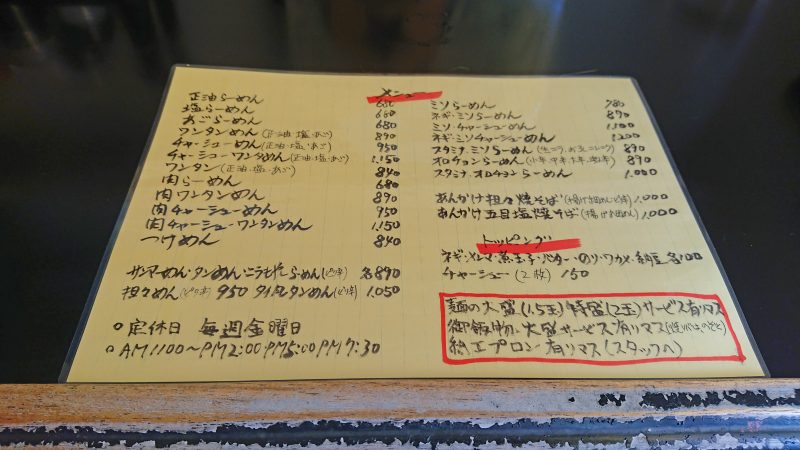 メニュー
正油らーめん 680
塩らーめん 680
あごらーめん 680
ワンタンめん (正油・塩・あご) 890
チャーシューめん (正油・塩・あご) 950
チャーシューワンタンめん (正油・塩・あご) 1.150
ワンタン (正油・塩・あご) 840
肉らーめん 680
肉ワンタンめん 890
肉チャーシューめん 950
肉チャーシューワンタンめん 1.150
つけめん 840
サンマーめん・タンめん・ニラもやしらーめん 各890
担々めん 950 タイタンタンめん 1.050
○定休日 毎週金曜日
○AM11:00〜PM2:00 PM5:00 PM7:30
ミソらーめん 780
ネギ・ミソらーめん 890
ミソ・チャーシューめん 1.100
ネギ・ミソチャーシューめん 1.200
スタミナ・ミソらーめん 890
オロチョンらーめん 890
スタミナ・オロチョンらーめん 1.000
あんかけ担々焼そば 1.000
あんかけ五目塩焼そば 1.000
トッピング
ネギ・メンマ・煮玉子・バター・のり・ワカメ・納豆 各100
チャーシュー (2枚) 150
麺の大盛(1,5玉)特盛(2玉)サービス有リマス
御飯物、大盛サービス有リマス
紙エプロン有リマス(スタッフへ)